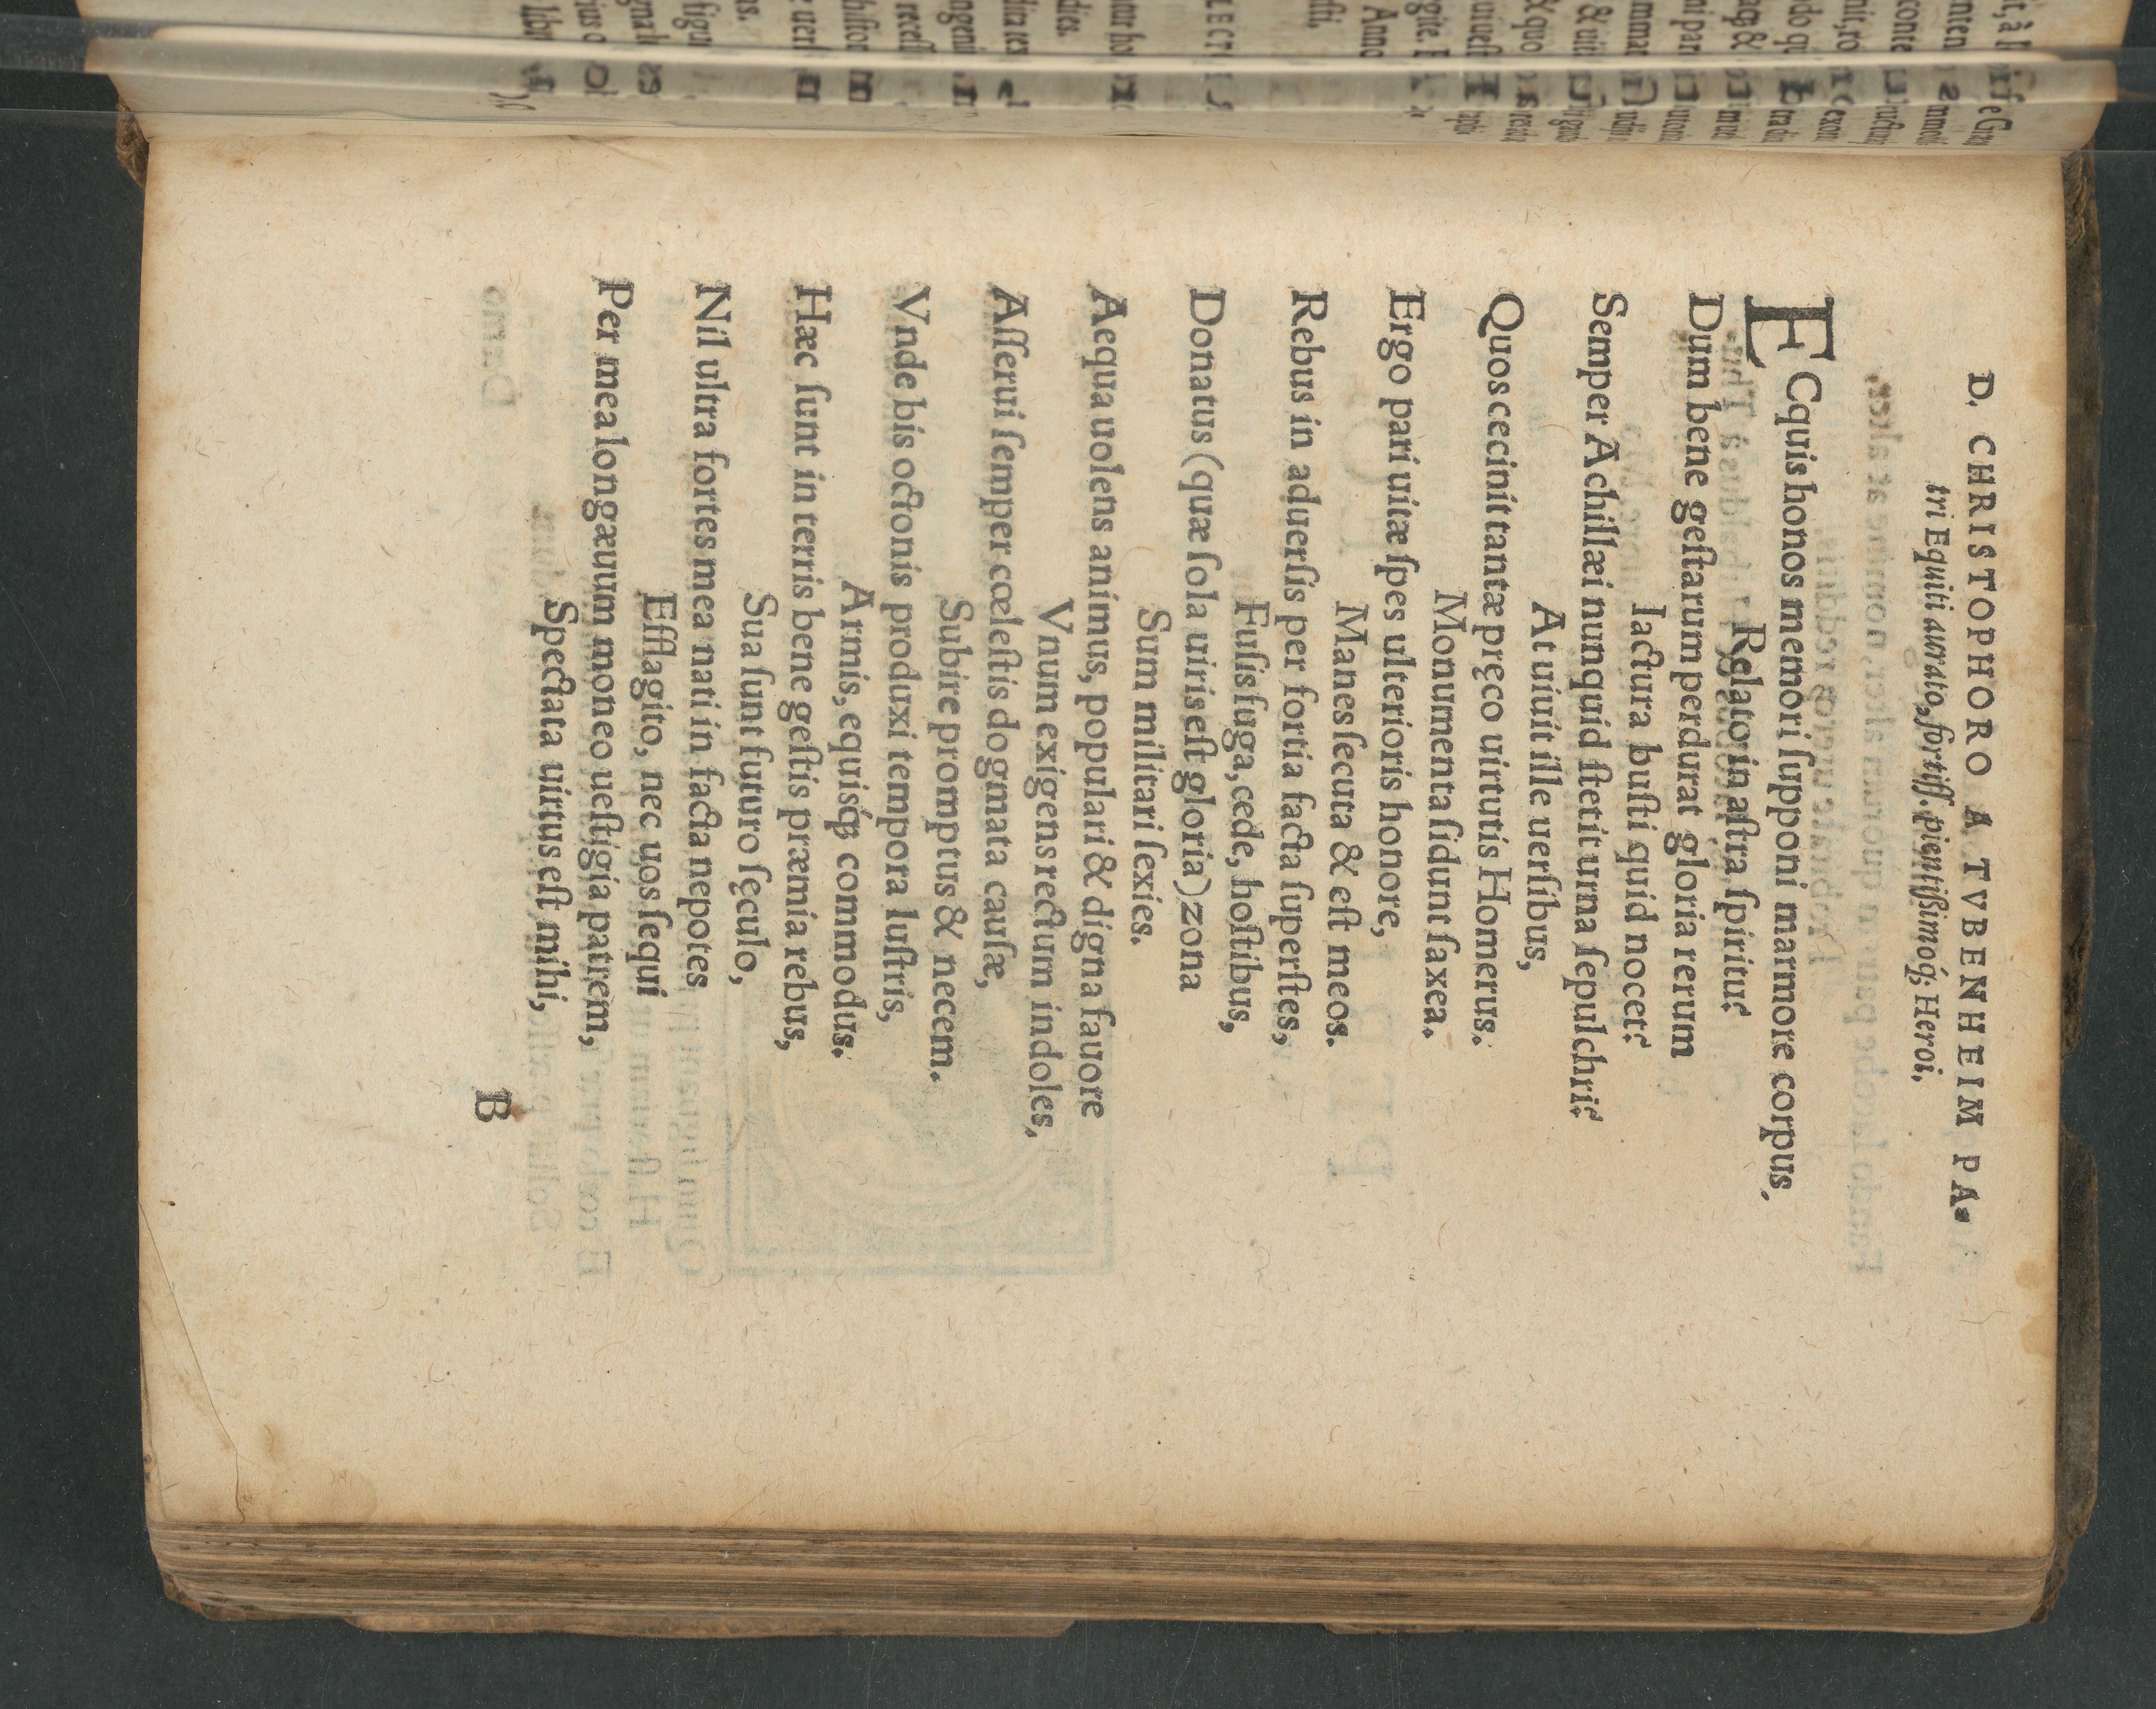 D. CHRISTOPHORO A TVBENHEIM PA-
tri Equiti aurato, fortiss. pientißimoq́; Heroi.
ECquis honos memori ſupponi marmore corpus,
Relato in aſtra ſpiritu?
Dum bene geſtarum perdurat gloria rerum
Iactura buſti quid nocet?
Semper Achillæi nunquid ſtetit urna ſepulchri?
At uiuit ille uerſibus,
Quos cecinit tantæ pręco uirtutis Homerus.
Monumenta ſidunt ſaxea.
Ergo pari uitæ ſpes ulterioris honore,
Manes ſecuta & eſt meos.
Rebus in aduerſis per fortia facta ſuperſtes,
Fuſis fuga, cede, hoſtibus,
Donatus (quæ ſola uiris eſt gloria) zona
Sum militari ſexies.
Aequa uolens animus, populari & digna fauore
Vnum exigens rectum indoles,
Aſſerui ſemper cœleſtis dogmata cauſæ,
Subire promptus & necem.
Vnde bis octonis produxi tempora luſtris,
Armis, equisq́; commodus.
Hæc ſunt in terris bene geſtis præmia rebus,
Sua ſunt futuro ſęculo,
Nil ultra fortes mea nati in facta nepotes
Efflagito, nec uos ſequi
Per mea longæuum moneo ueſtigia patrem,
Spectata uirtus eſt mihi,
B